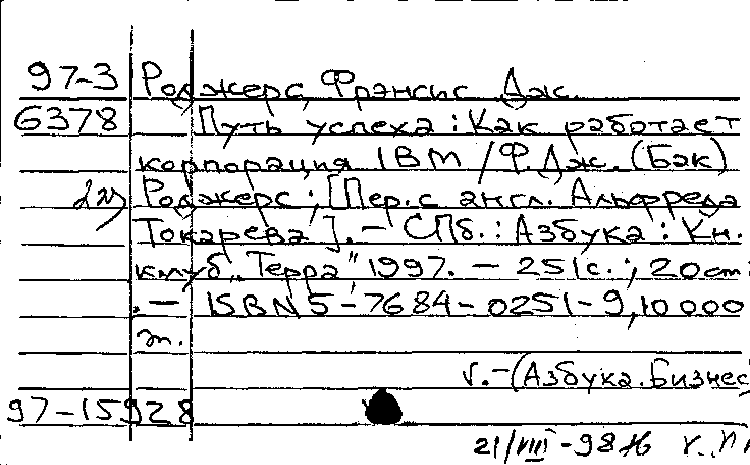 97-3 Роджерс, Фрэнсис Дж.
6378 Путь успеха : Как работает
корпорация IBM / Ф. Дж. (Бэк)
2 Роджерс ; [Пер. с англ. Альфреда
Токарева]. - СПб. : Азбука : Кн.
клуб „Терра", 1997. - 251 с. ; 20 см
. - ISBN 5-7684-0251-9, 10 000
т.
- (Азбука. Бизнес)
97-15928
21/VIII-98